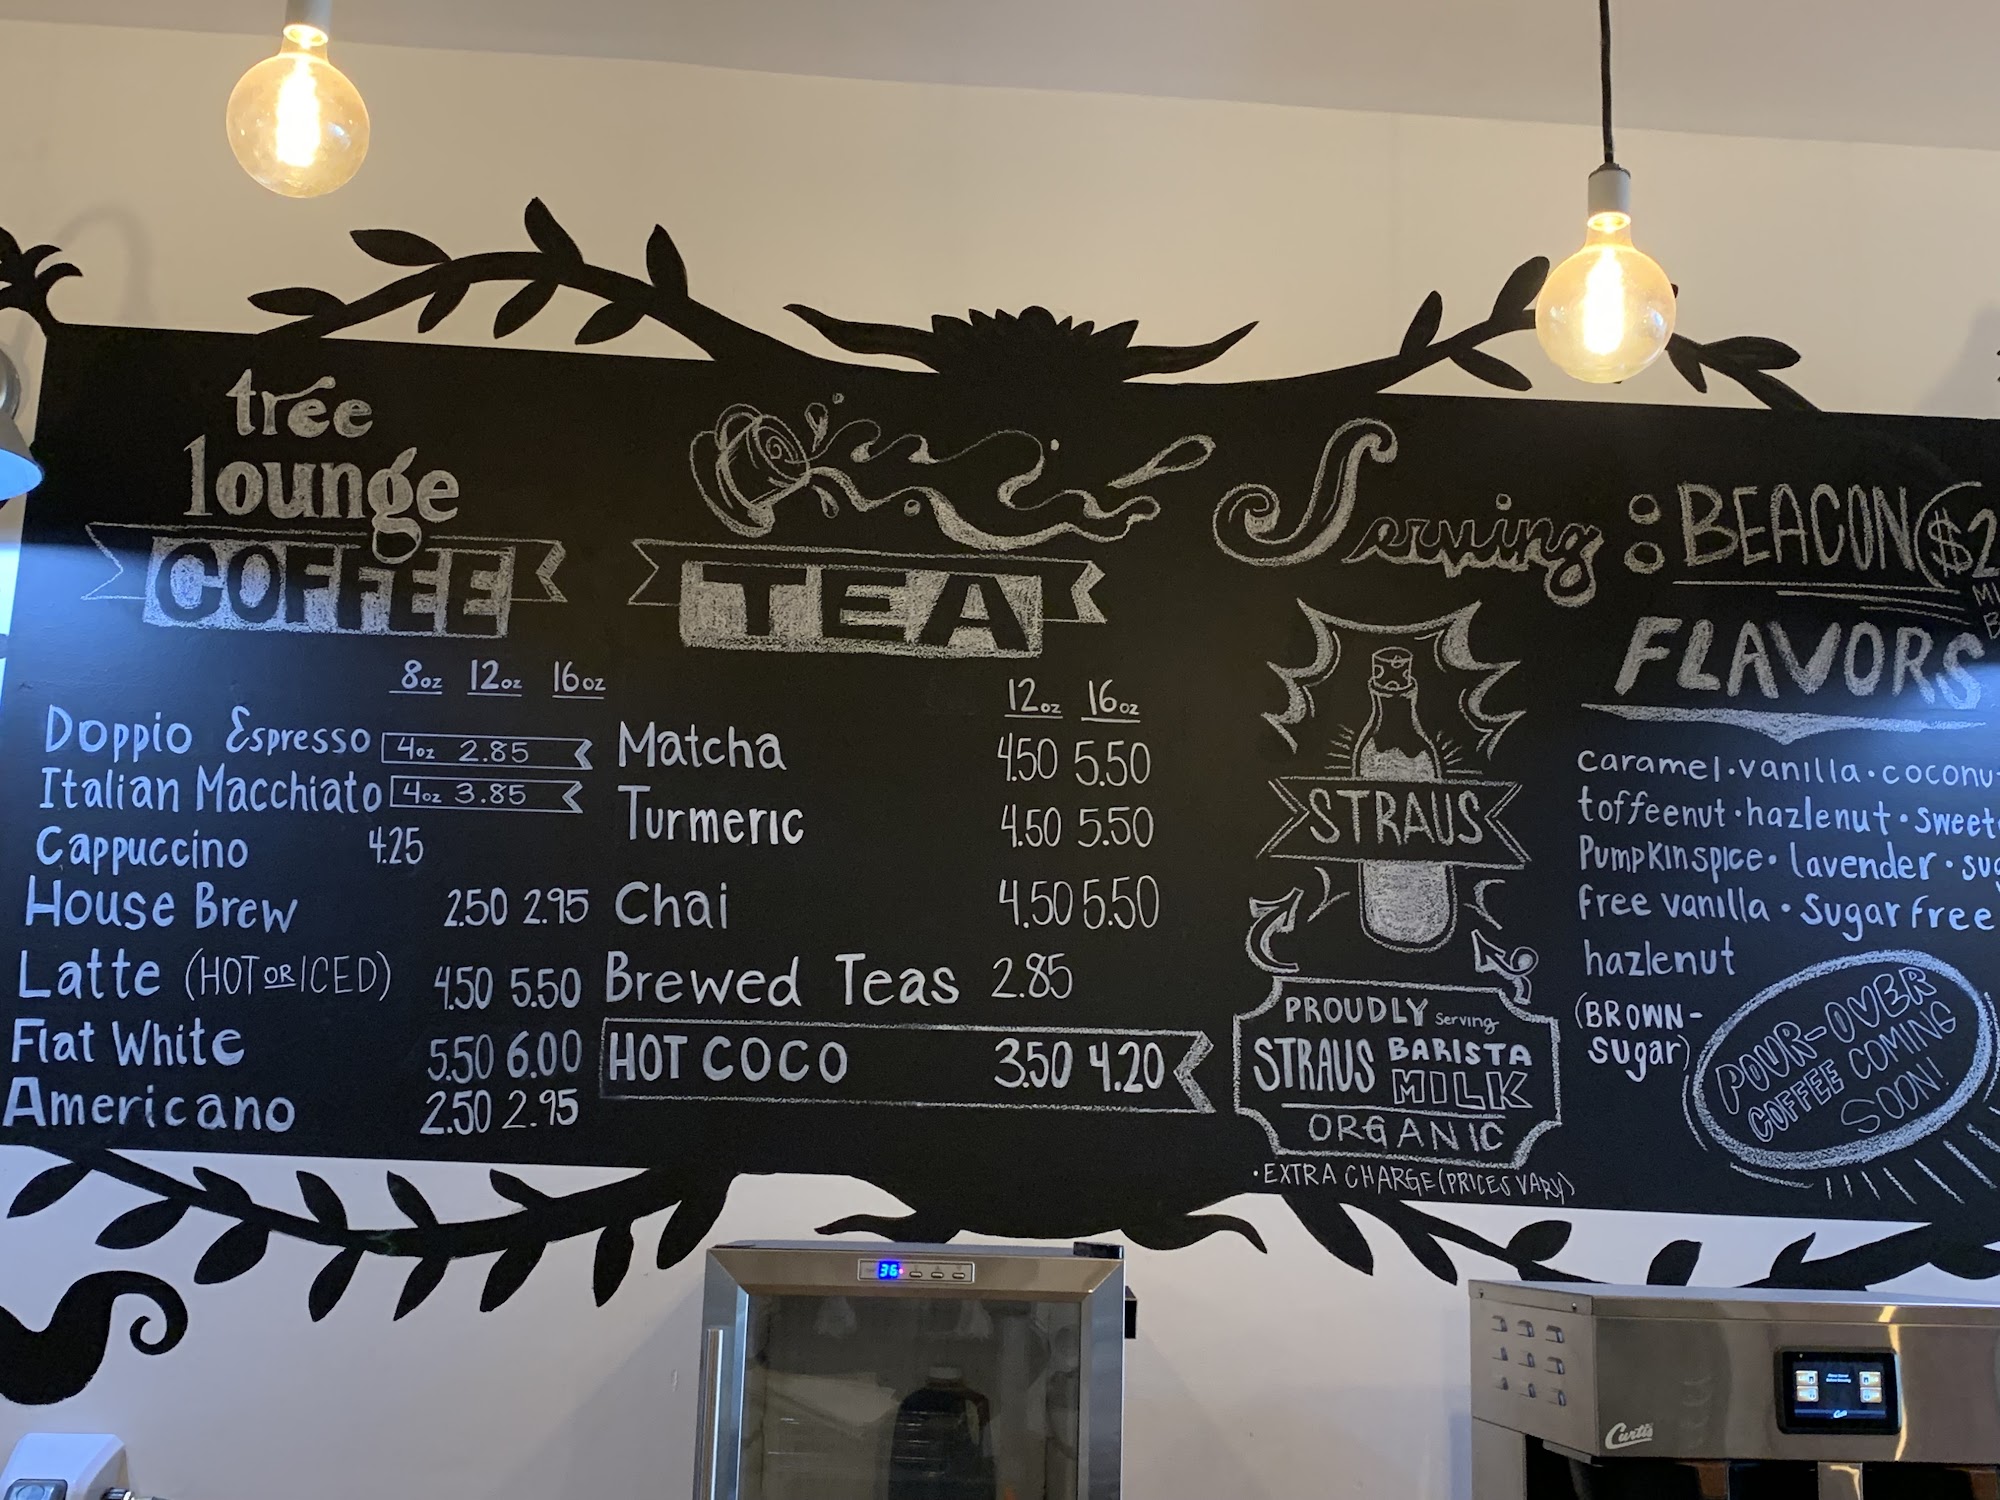 tree
lounge
COFFEE
8oz 12oz 16oz
Doppio Espresso 4oz 2.85
Italian Macchiato 4oz 3.85
Cappuccino 4.25
House Brew 2.50 2.95
Latte (HOT OR ICED) 4.50 5.50
Flat White 5.50 6.00
Americano 2.50 2.95
TEA
12oz 16oz
Matcha 4.50 5.50
Turmeric 4.50 5.50
Chai 4.50 5.50
Brewed Teas 2.85
HOT COCO 3.50 4.20
Serving : BEACON ($2
STRAUS
PROUDLY serving
STRAUS BARISTA
MILK
ORGANIC
•EXTRA CHARGE (PRICES VARY)
FLAVORS
caramel•vanilla•coconut
toffeenut•hazlenut•sweet
PumpKinspice•lavender•
free vanilla•Sugar free
hazlenut
(BROWN-
sugar)
POUR-OVER
COFFEE COMING
SOON!
36
Curtis